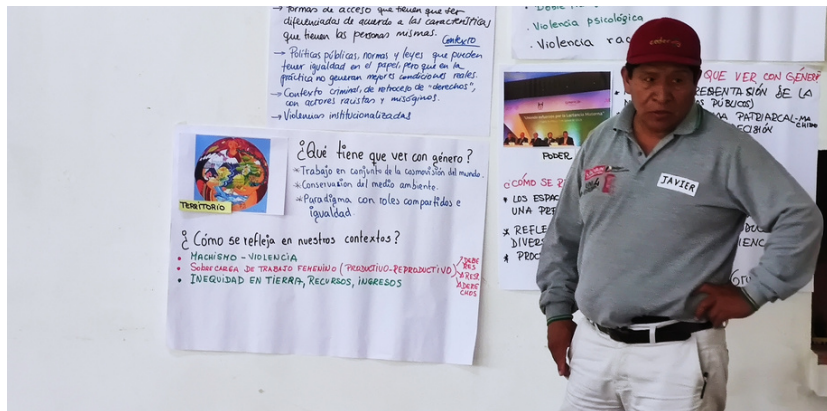 → Formas de acceso que tienen que ser
diferenciadas de acuerdo a las características
que tienen las personas mismas. Contexto
→ Políticas públicas, normas y leyes que pueden
tener igualdad en el papel, pero que en la
práctica no generan mejores condiciones reales.
→ Contexto criminal, de retroceso de "derechos",
con actores racistas y misóginos.
→ Violencias institucionalizadas
TERRITORIO
¿Qué tiene que ver con género?
* Trabajo en conjunto de la cosmovisión del mundo.
* Conservasion del medio ambiente.
* Paradigma con roles compartidos e
igualdad.
¿Cómo se refleja en nuestros contextos?
• MACHISMO - VIOLENCIA
• Sobrecarga DE TRABAJO FEMENINO (PRODUCTIVO-REPRODUCTIVO)
DEBE
RES
DERE
CHOS
• INEQUIDAD EN TIERRA, RECURSOS, INGRESOS
• Violencia psicológica
• Violencia rac
QUE VER CON GÉNER
SENTASIÓN DE LA
PÚBLICOS)
PATRIARCAL-MA
CHISMO
PODER
¿CÓMO SE R
• LOS ESPAC
UNA PRE
* REFLE
DIVERS
* PROC
JAVIER